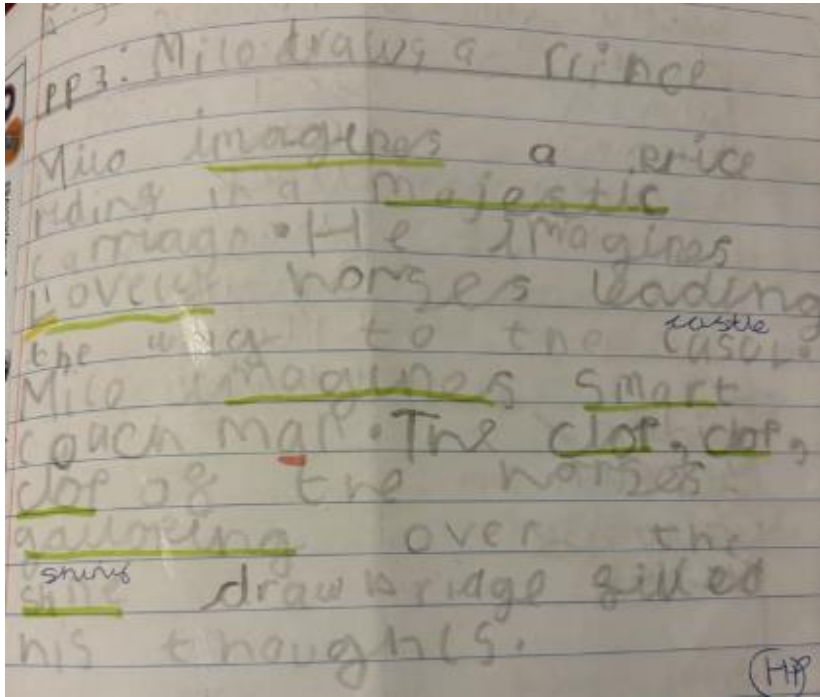 pp3: Milo draws a Prince
Milo imagenes a price
riding in a majestic
carriage. He imagines
Lovely horses leading
castle
the way to the
Milo imagines smart
coach man. The clop, clop,
clop of the horses
galloping over the
shiny
drawbridge filled
his thoughts.
HP